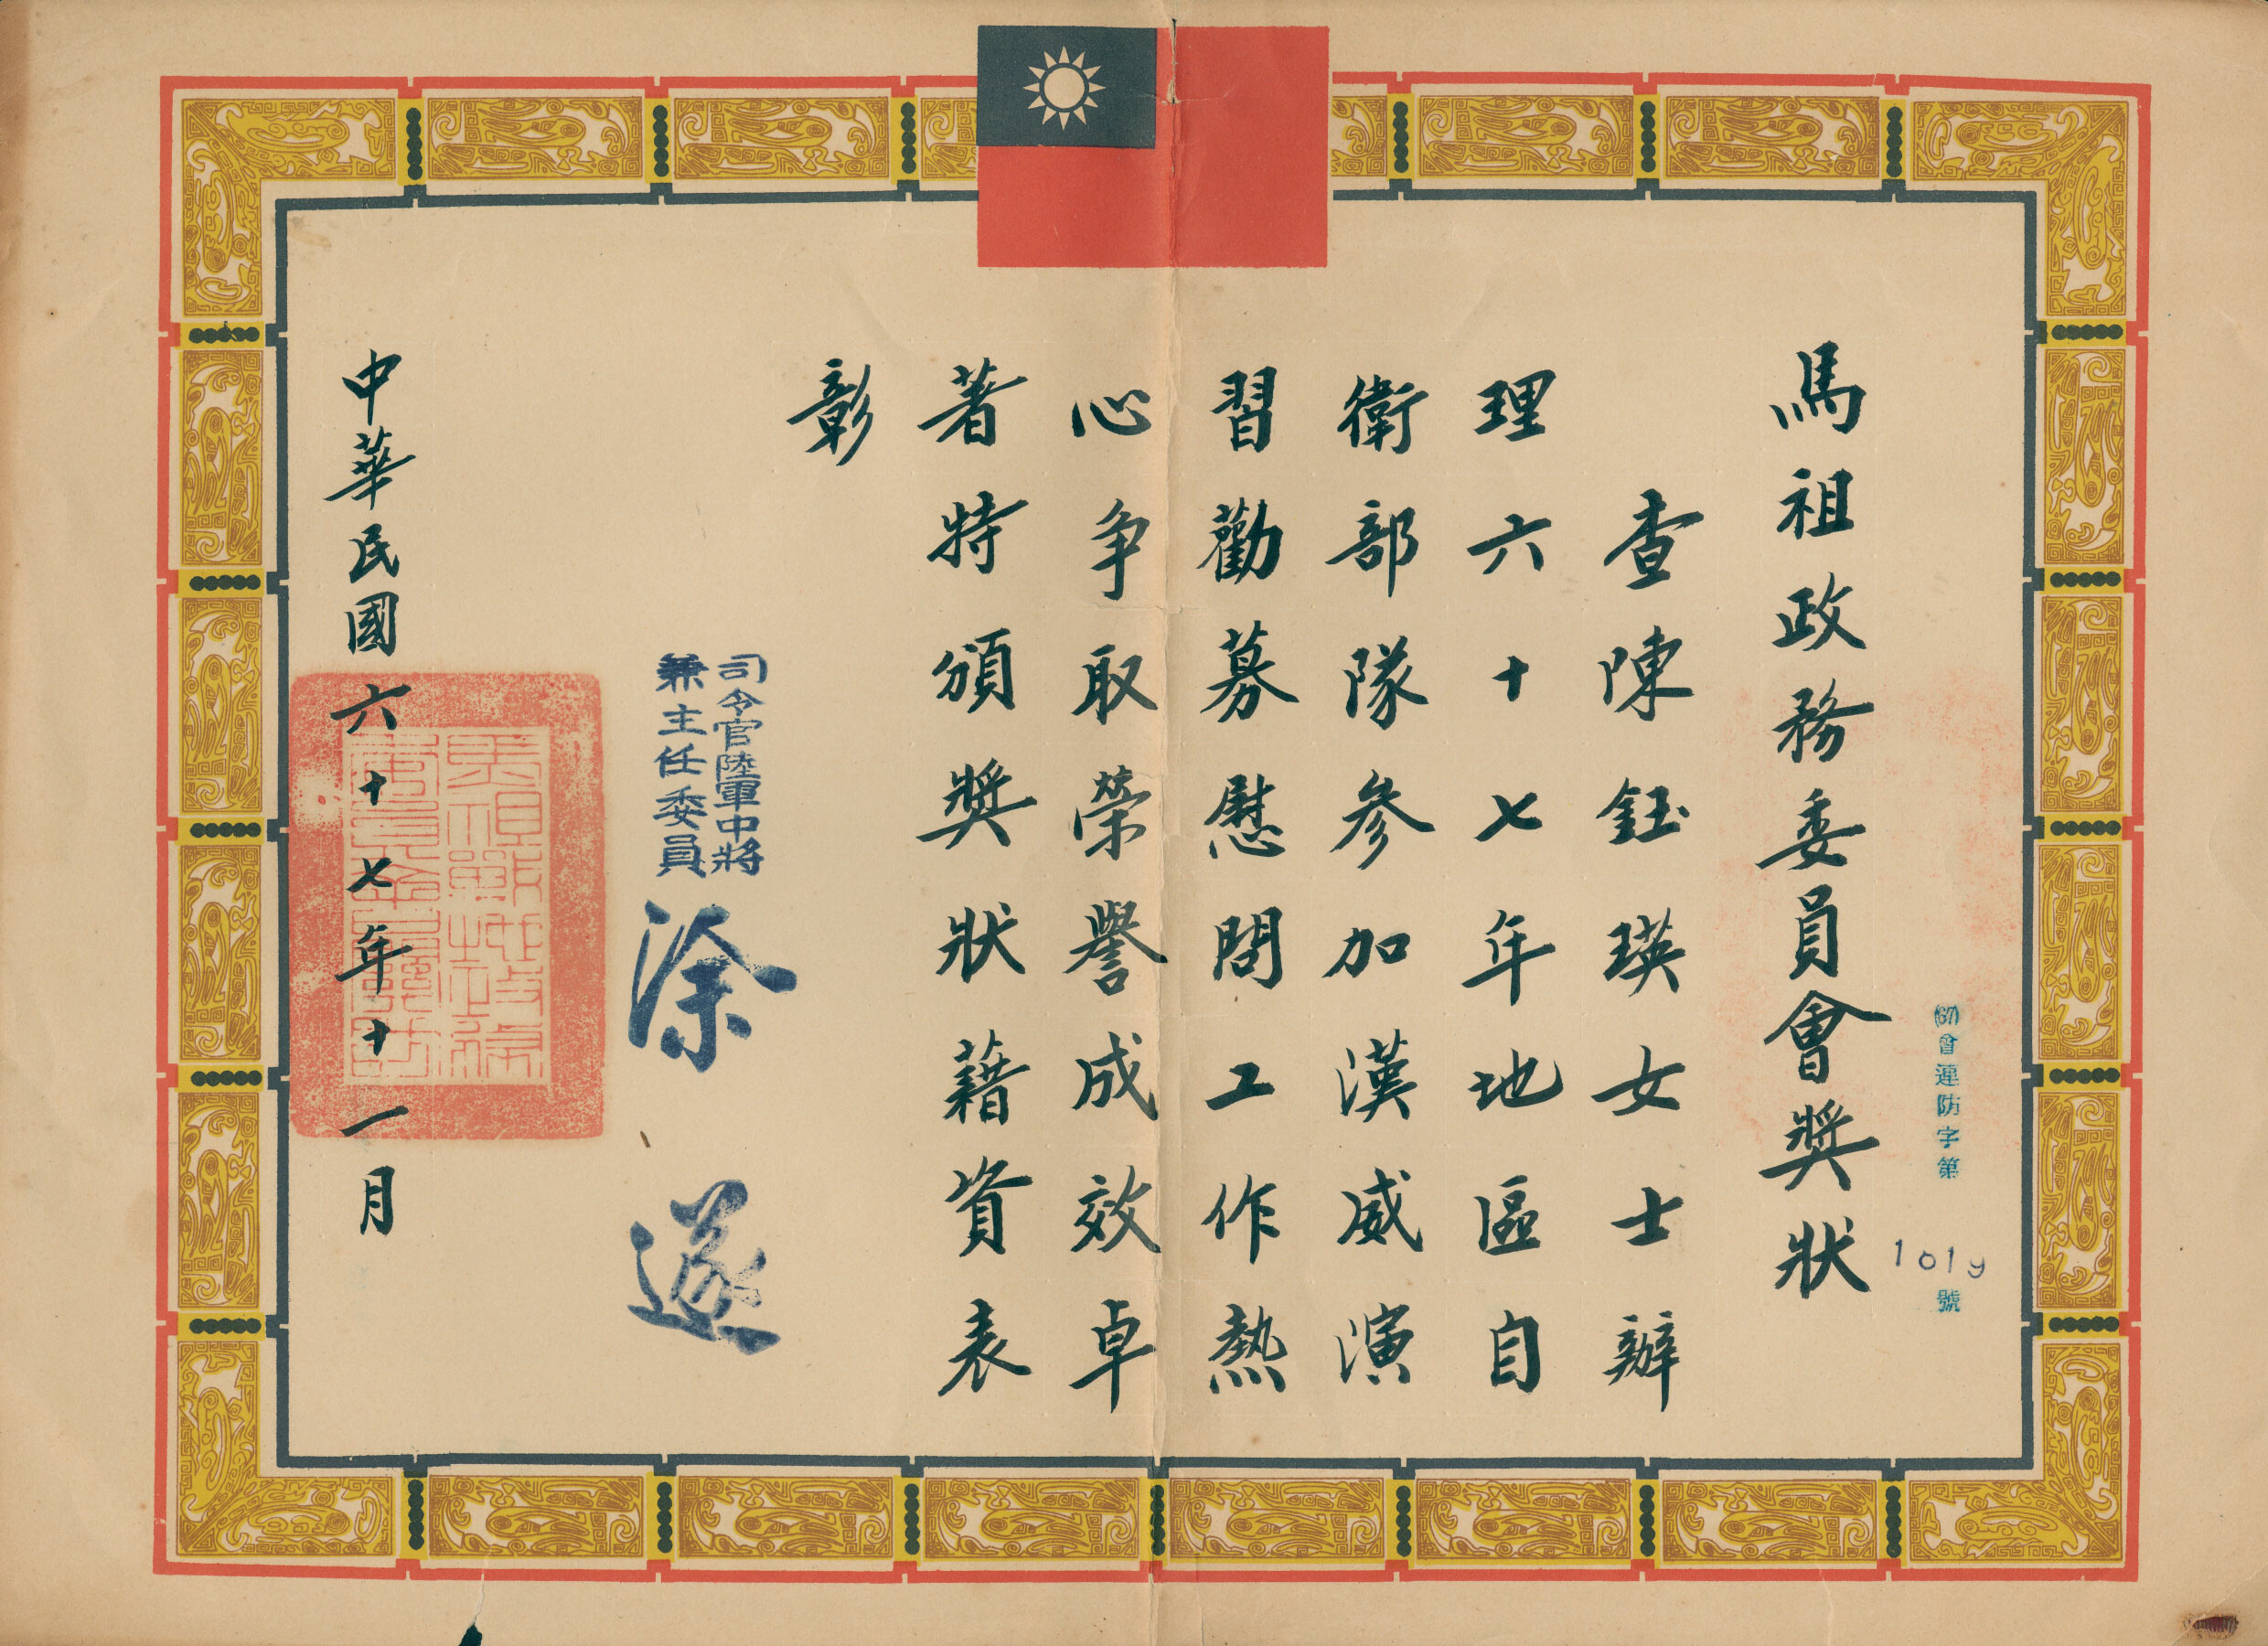 馬祖政務委員會獎狀
(67)會運防字第1019號
查陳鈺瑛女士辦
理六十七年地區自
衛部隊參加漢威演
習勸募慰問工作熱
心爭取榮譽成效卓
著特頒獎狀藉資表
彰
司令官陸軍中將
兼主任委員
涂遂
中華民國六十七年十一月